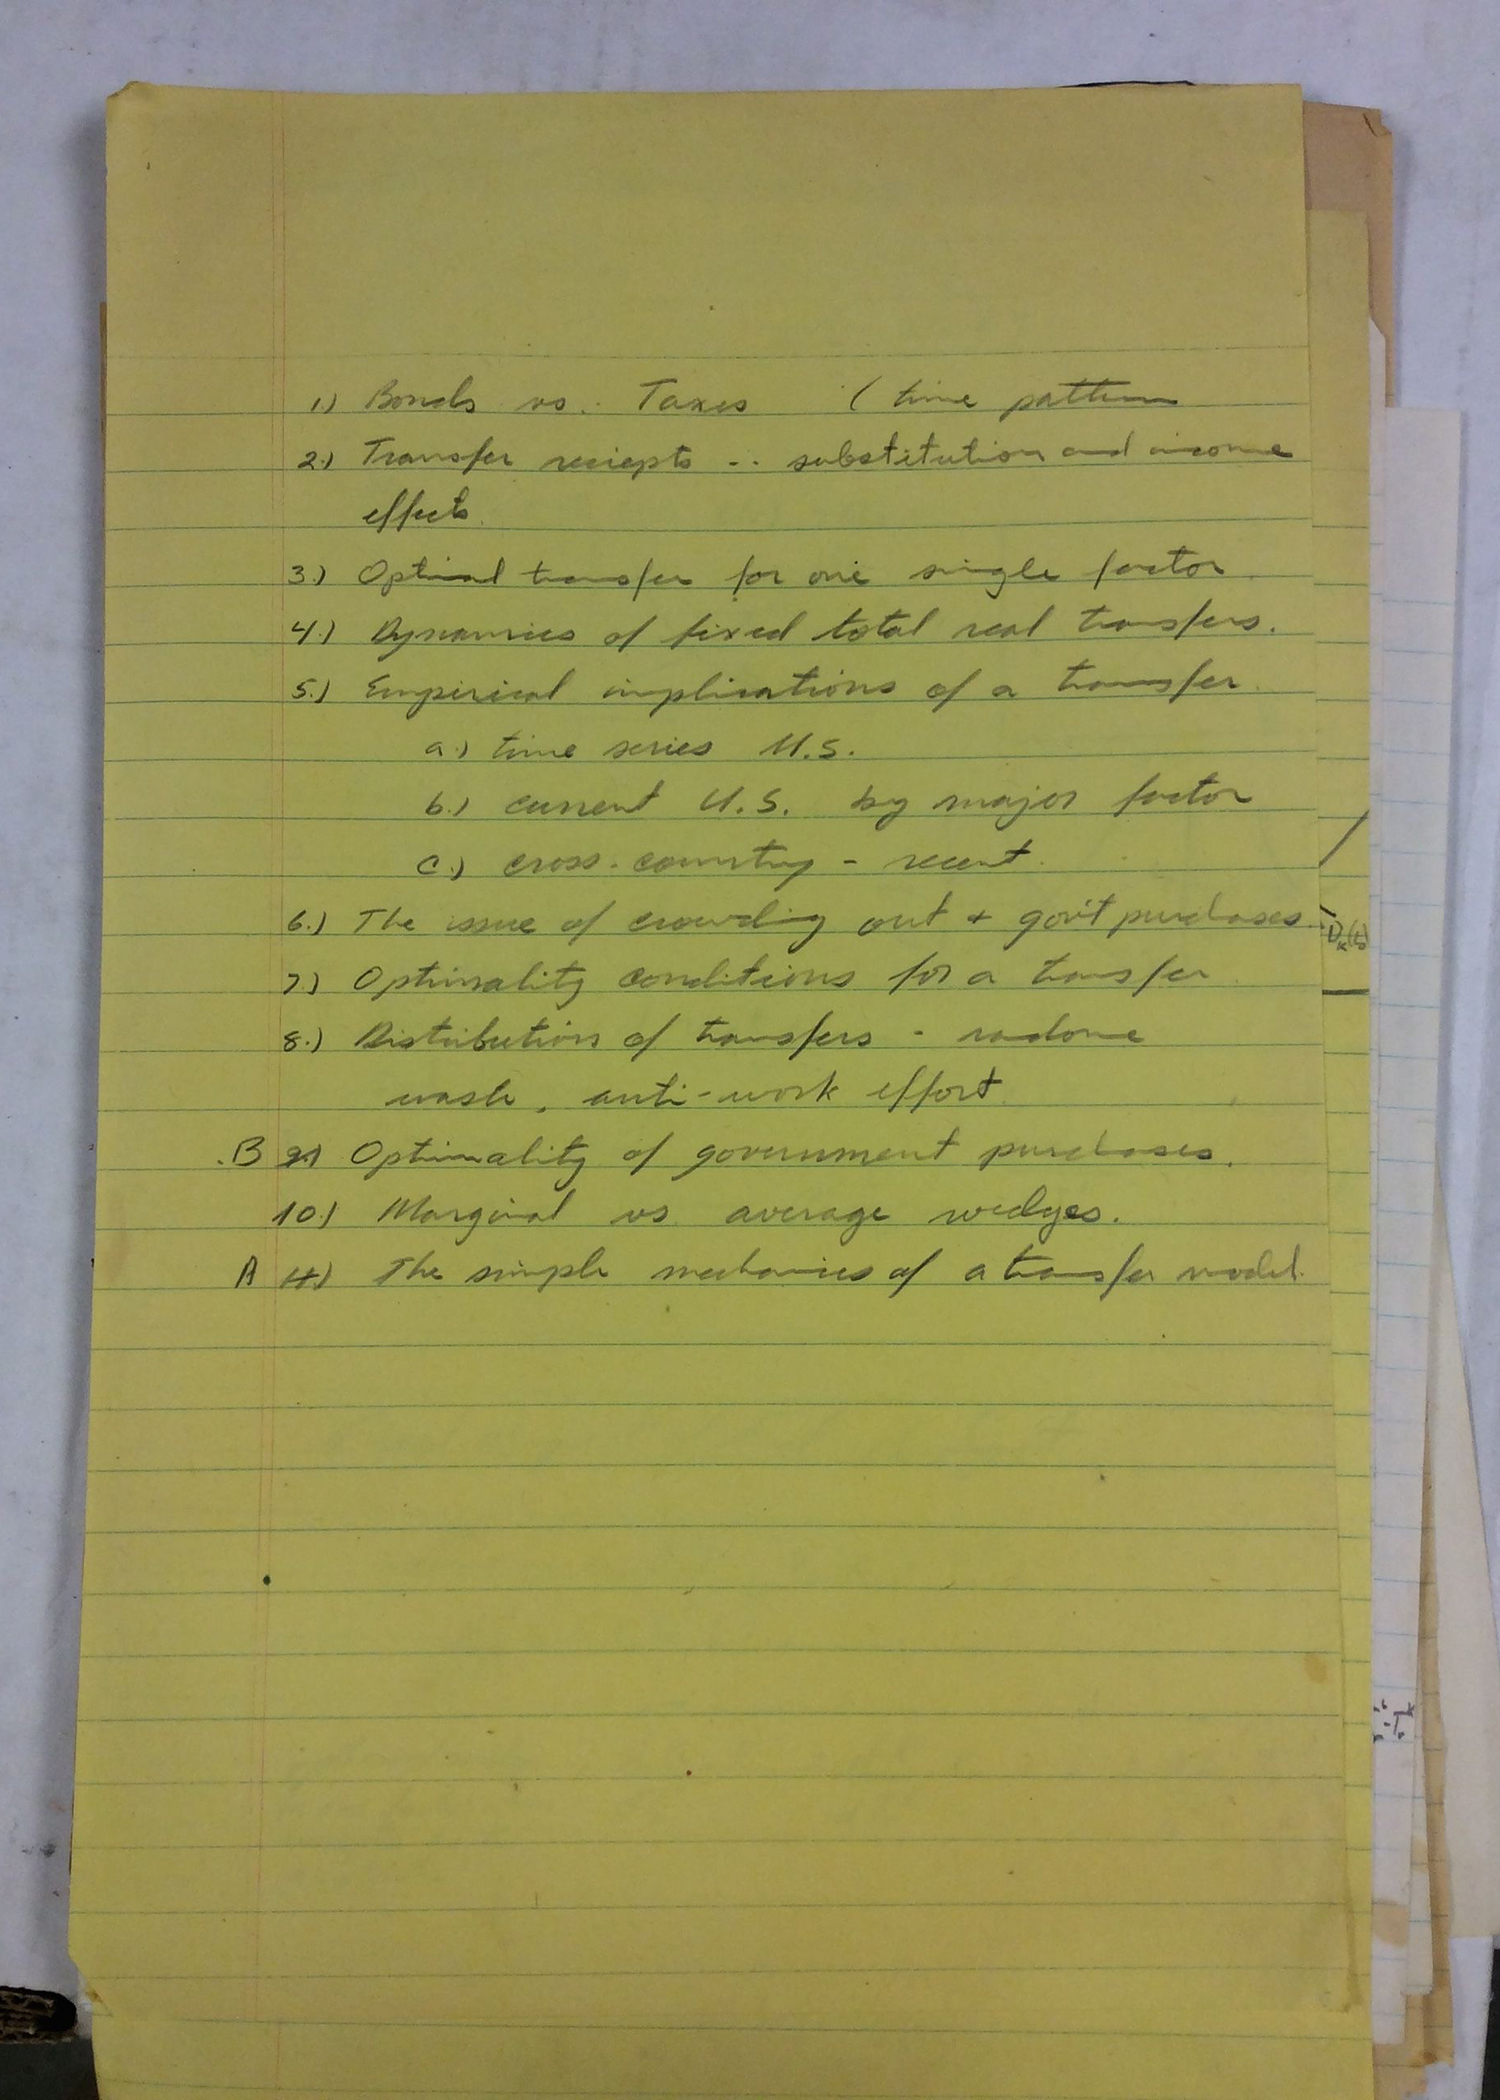 1.) Bonds vs. Taxes ( time pattern
2.) Transfer reciepts -- substitution and income
effects.
3.) Optimal transfer for one single factor.
4.) Dynamics of fixed total real transfers.
5.) Empirical implications of a transfer.
a.) time series U.S.
b.) current U.S. by major factor
c.) cross-country - recent.
6.) The issue of crowding out + gov't purchases
7.) Optimality conditions for a transfer
8.) Distribution of transfers -
, anti-work effort.
B 9.) Optimality of government purchases.
10.) Marginal vs average wedges.
A 11.) The simple mechanics of a transfer model.